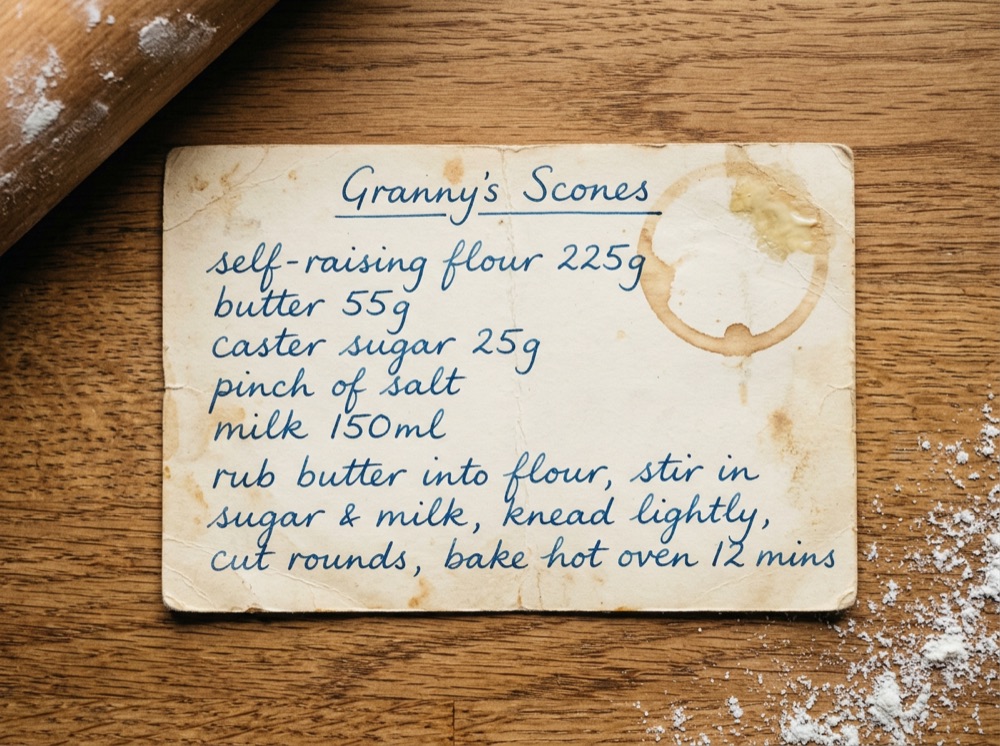 Granny's Scones
self-raising flour 225g
butter 55g
caster sugar 25g
pinch of salt
milk 150ml
rub butter into flour, stir in
sugar & milk, knead lightly,
cut rounds, bake hot oven 12 mins